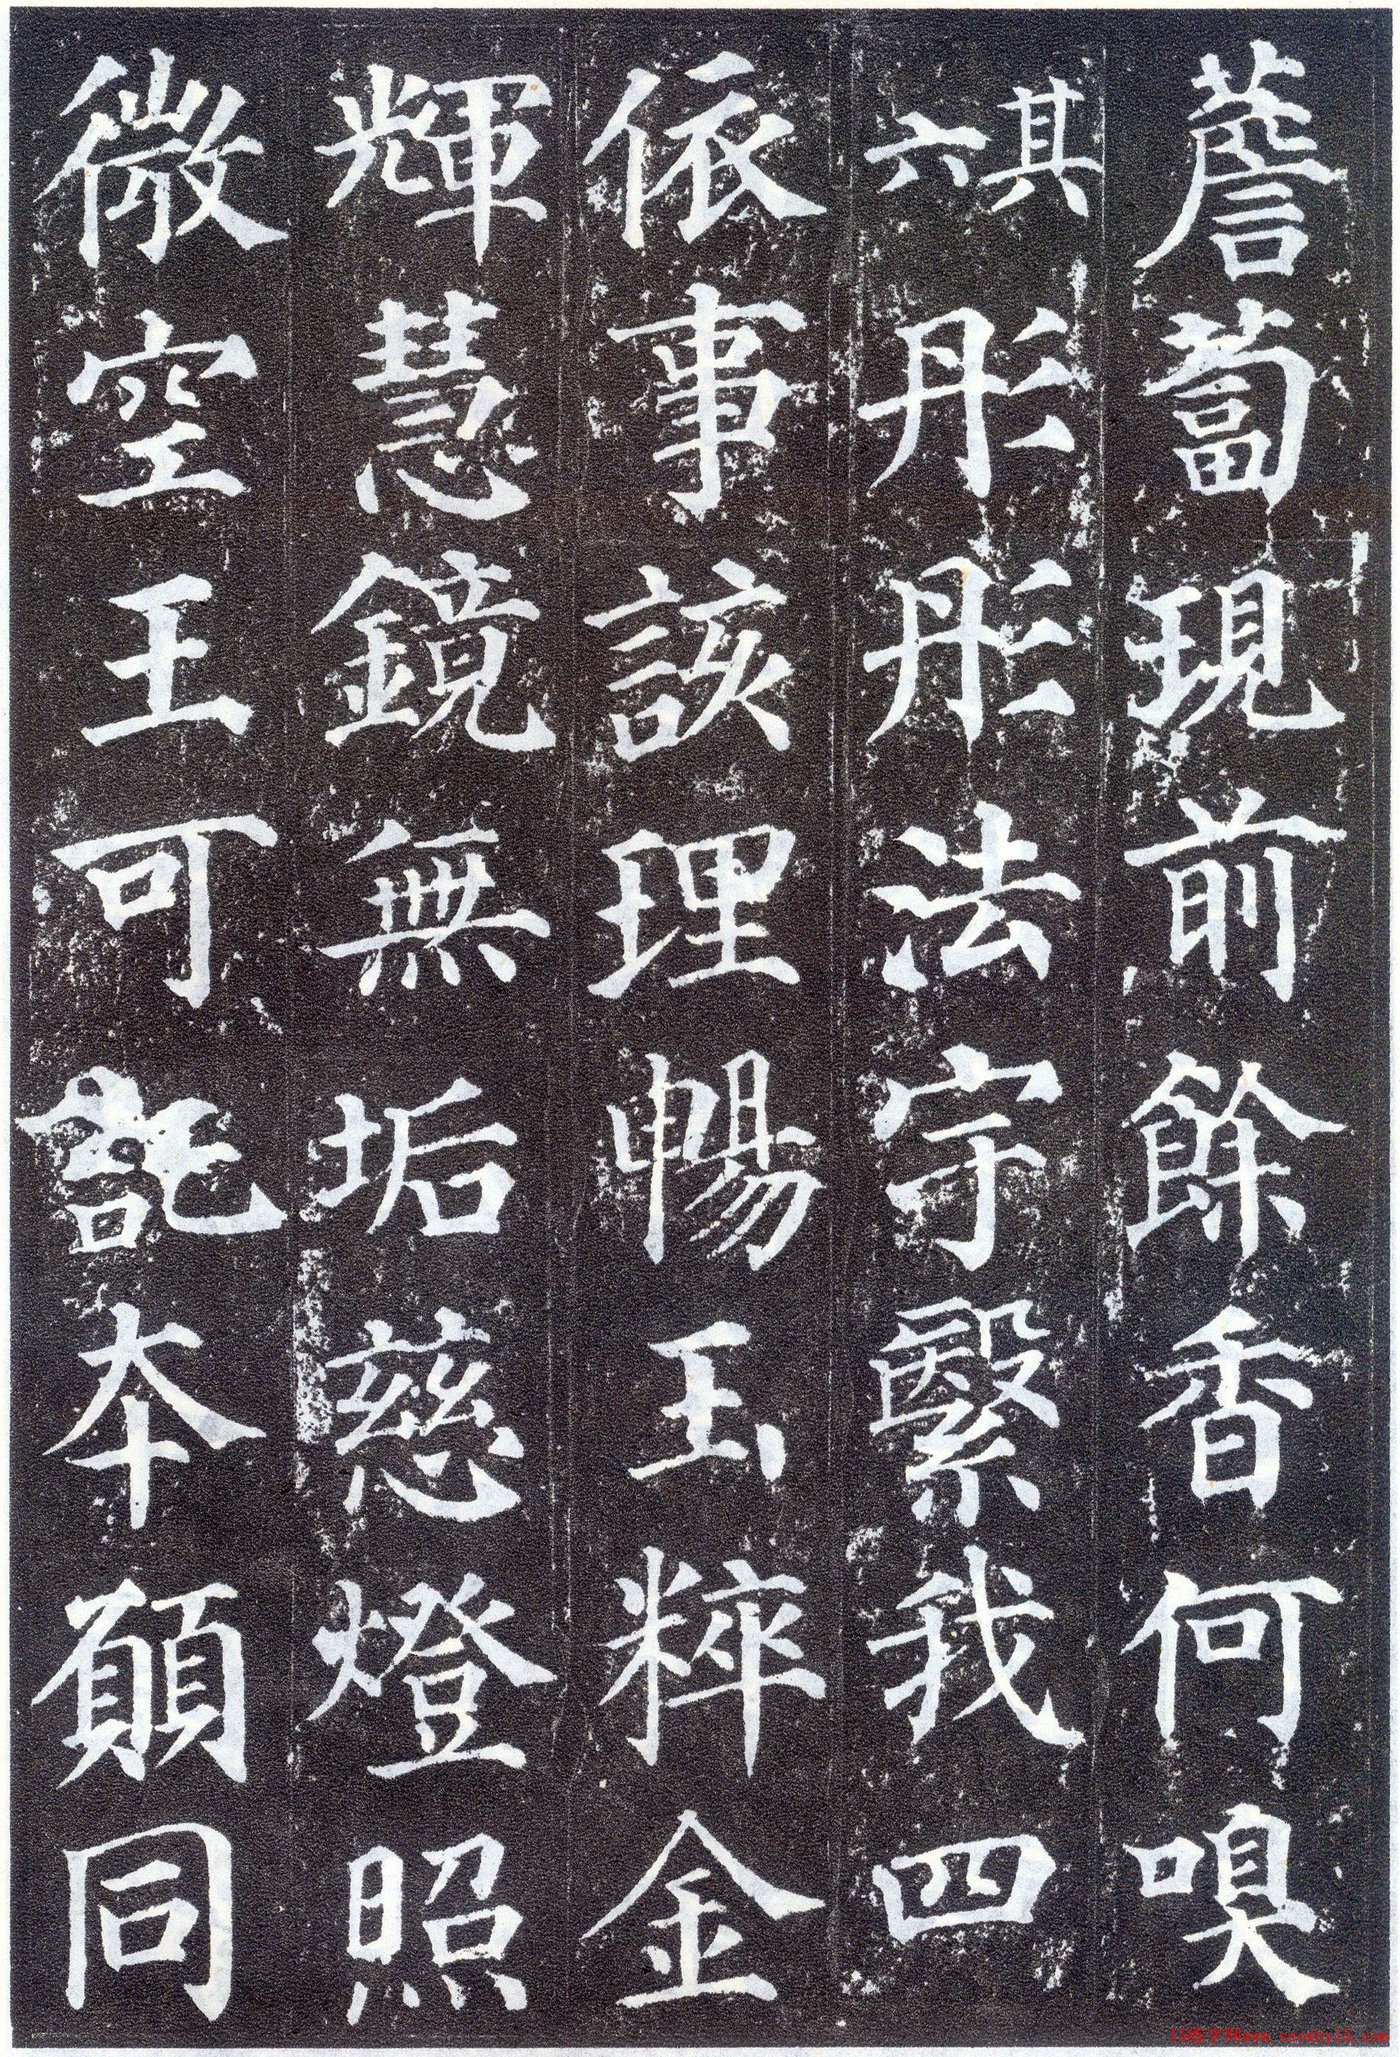 薝蔔現前餘香何嗅
其六彤彤法宇繄我四
依事該理暢玉粹金
輝慧鏡無垢慈燈照
微空王可託本願同